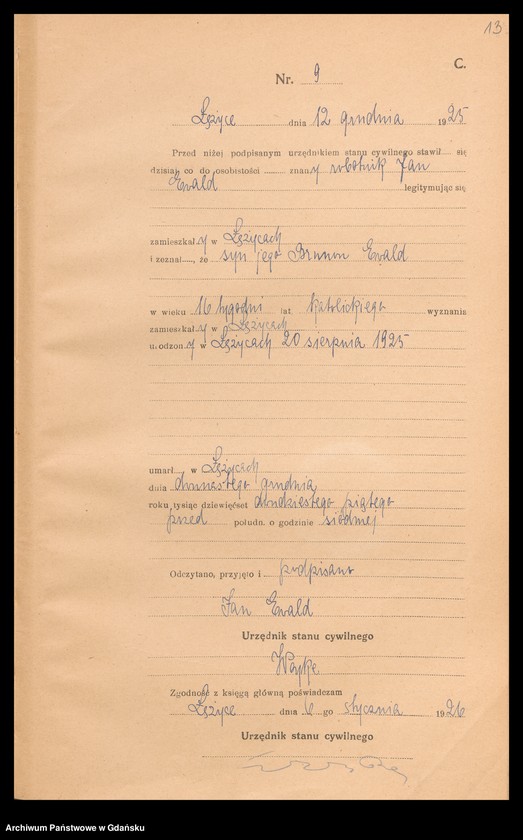 13
C.
Nr. 9
Łężyce dnia 12 grudnia 1925
Przed niżej podpisanym urzędnikiem stanu cywilnego stawił się
dzisiaj, co do osobistości znany robotnik Jan
Ewald legitymując się
zamieszkały w Łężycach
i zeznał, że syn jego Brunon Ewald
w wieku 16 tygodni lat katolickiego wyznania
zamieszkały w Łężycach
urodzony w Łężycach 20 sierpnia 1925
umarł w Łężycach
dnia dwunastego grudnia
roku tysiąc dziewięćset dwudziestego piątego
przed połudn. o godzinie siódmej
Odczytano, przyjęto i podpisano
Jan Ewald
Urzędnik stanu cywilnego
Zgodność z księgą główną poświadczam
Łężyce dnia 6 go stycznia 1926
Urzędnik stanu cywilnego
Archiwum Państwowe w Gdańsku